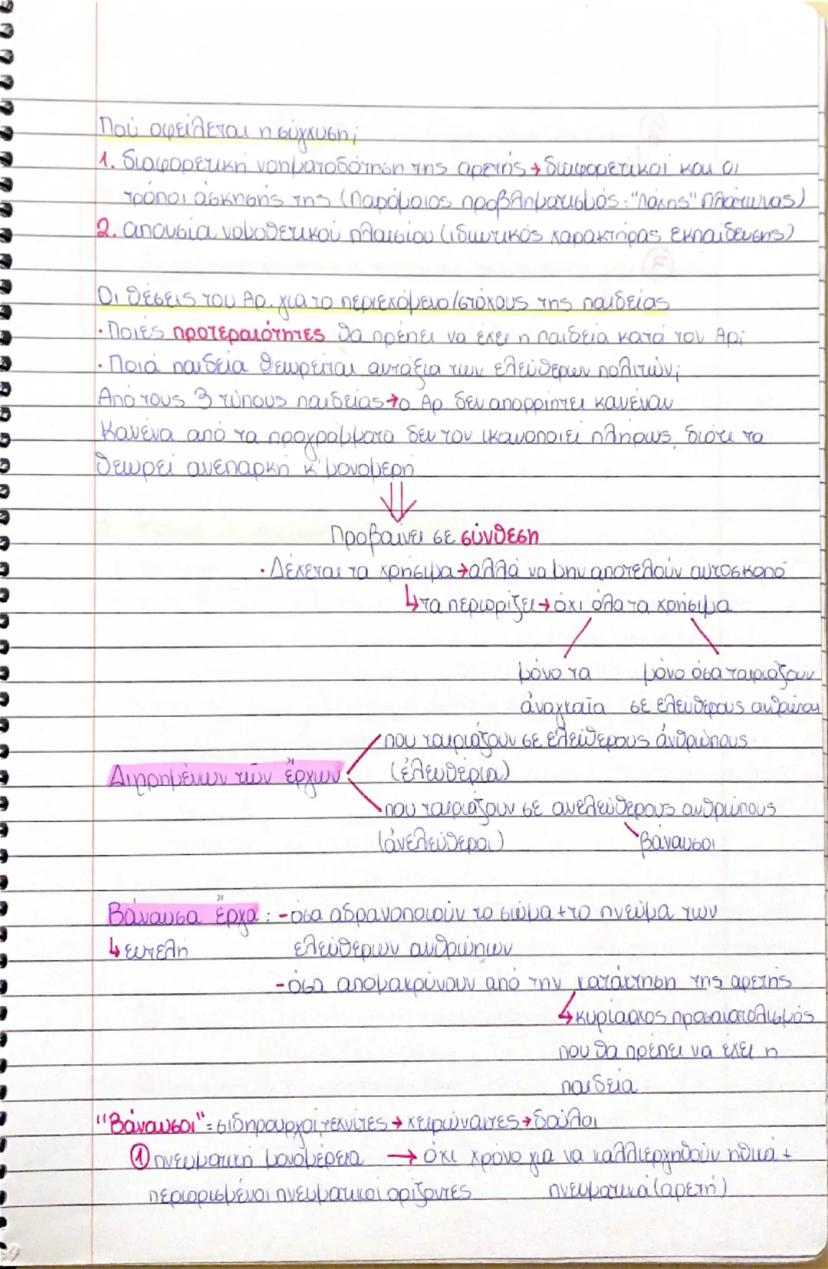 Πού οφείλεται η σύγχυση;
1. διαφορετική νοηματοδότηση της αρετής → διαφορετικοί και οι
τρόποι άσκησής της (Παρόμοιος προβληματισμός: "Λάχης" Πλάτωνας)
2. απουσία νομοθετικού πλαισίου (ιδιωτικός χαρακτήρας εκπαίδευσης)
Οι θέσεις του Αρ. για το περιεχόμενο/στόχους της παιδείας
· Ποιές προτεραιότητες θα πρέπει να έχει η παιδεία κατά τον Αρ;
· Ποιά παιδεία θεωρείται αντάξια των ελεύθερων πολιτών;
Από τους 3 τύπους παιδείας → ο Αρ δεν απορρίπτει κανέναν
Κανένα από τα προγράμματα δεν τον ικανοποιεί πλήρως, διότι τα
θεωρεί ανεπαρκή κ' μονομερή
⇓
Προβαίνει σε σύνθεση
· Δέχεται τα χρήσιμα → αλλά να μην αποτελούν αυτοσκοπό
↳ τα περιορίζει → όχι όλα τα χρήσιμα
μόνο τα μόνο όσα ταιριάζουν
ἀναγκαῖα σε ελεύθερους ανθρώπους
που ταιριάζουν σε ελεύθερους ἀνθρώπους
Διῃρημένων τῶν ἔργων (ἐλευθέρια)
που ταιριάζουν σε ανελεύθερους ανθρώπους
(ἀνελεύθεροι) βάναυσοι
Βάναυσα ἔργα: - όσα αδρανοποιούν το σώμα + το πνεύμα των
↳ ευτελή ελεύθερων ανθρώπων
- όσα απομακρύνουν από την κατάκτηση της αρετής
↳ κυρίαρχος προσανατολισμός
που θα πρέπει να έχει η
παιδεία
"Βάναυσοι" = σιδηρουργοί, τεχνίτες → χειρώνακτες → δούλοι
① πνευματική μονομέρεια → όχι χρόνο για να καλλιεργηθούν ηθικά +
περιορισμένοι πνευματικοί ορίζοντες πνευματικά (αρετή)